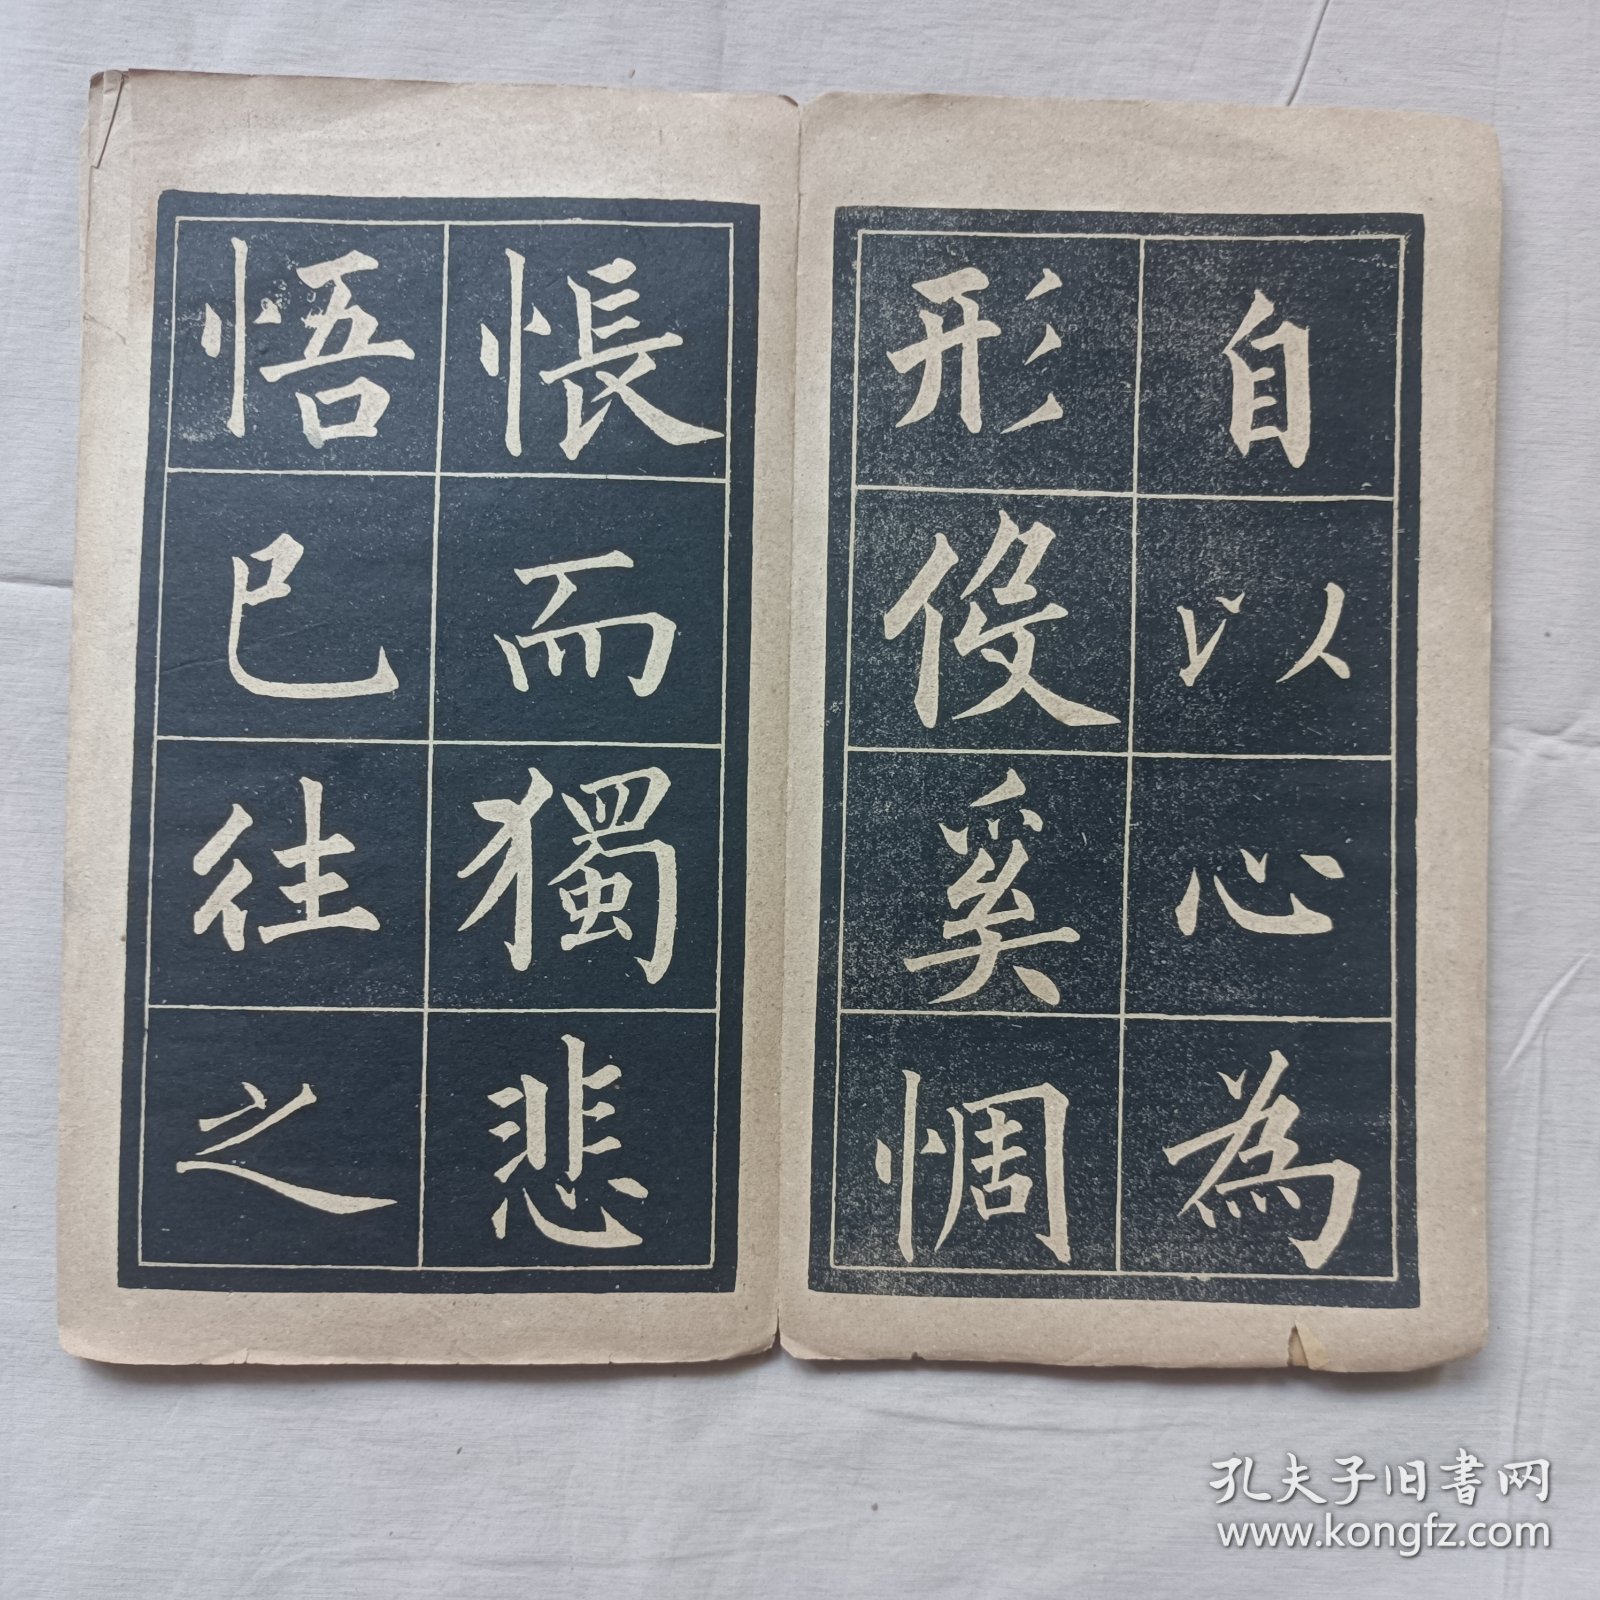 自以心為
形役奚惆
悵而獨悲
悟已往之
孔夫子旧书网
www.kongfz.com